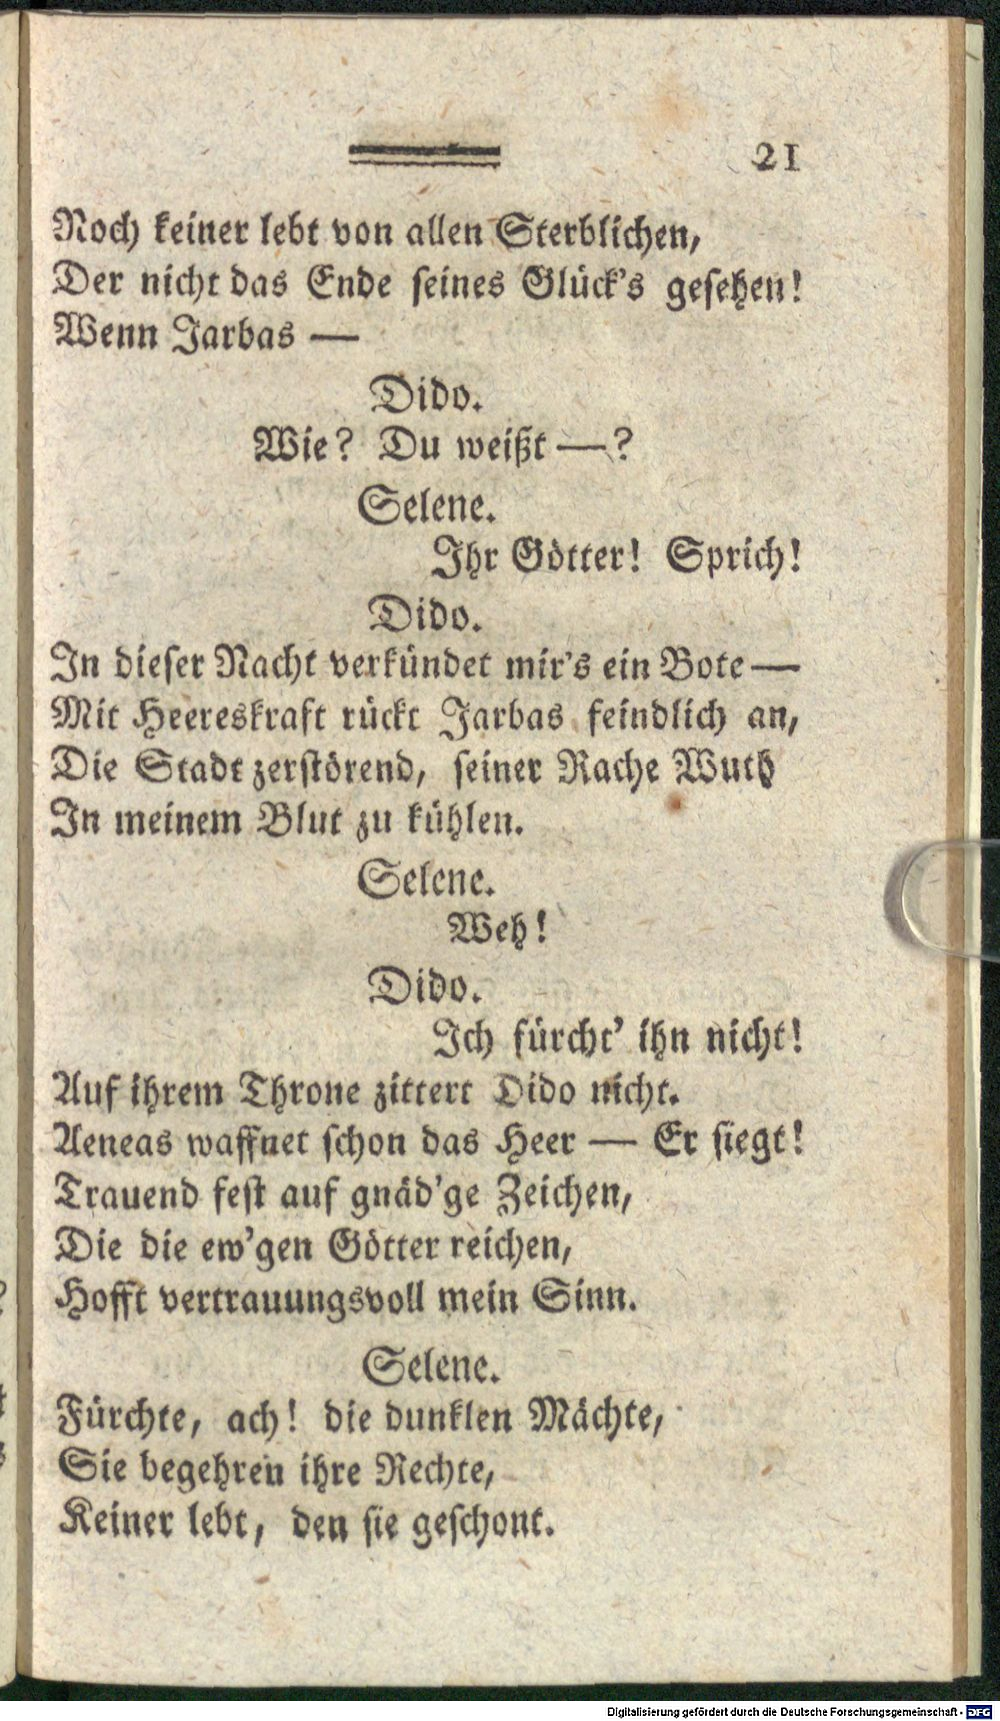 21
Noch keiner lebt von allen Sterblichen,
Der nicht das Ende seines Glück's gesehen!
Wenn Jarbas —
Dido.
Wie? Du weißt —?
Selene.
Ihr Götter! Sprich!
Dido.
In dieser Nacht verkündet mir's ein Bote —
Mit Heereskraft rückt Jarbas feindlich an,
Die Stadt zerstörend, seiner Rache Wuth
In meinem Blut zu kühlen.
Selene.
Weh!
Dido.
Ich fürcht' ihn nicht!
Auf ihrem Throne zittert Dido nicht.
Aeneas waffnet schon das Heer — Er siegt!
Trauend fest auf gnäd'ge Zeichen,
Die die ew'gen Götter reichen,
Hofft vertrauungsvoll mein Sinn.
Selene.
Fürchte, ach! die dunklen Mächte,
Sie begehren ihre Rechte,
Keiner lebt, den sie geschont.
Digitalisierung gefördert durch die Deutsche Forschungsgemeinschaft - DFG